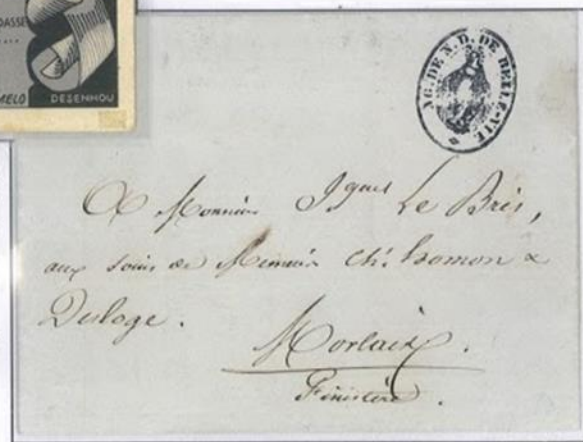 DASSE
MELO DESENHOU
AG. DE N. D. DE BELLE-VIE
A Monsieur Ygnes Le Bris,
aux soins de Messieurs Ch. homon &
Desloge.
Morlaix.
Finistère.